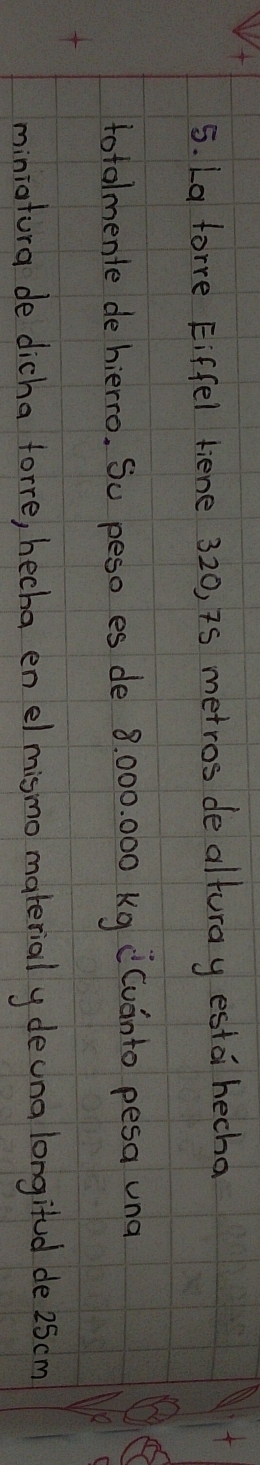 5. La torre Eiffel tiene 320,75 metros de altura y está hecha
totalmente de hierro. Su peso es de 8.000.000 kg ¿Cuánto pesa una
miniatura de dicha torre, hecha en el mismo material y de una longitud de 25cm